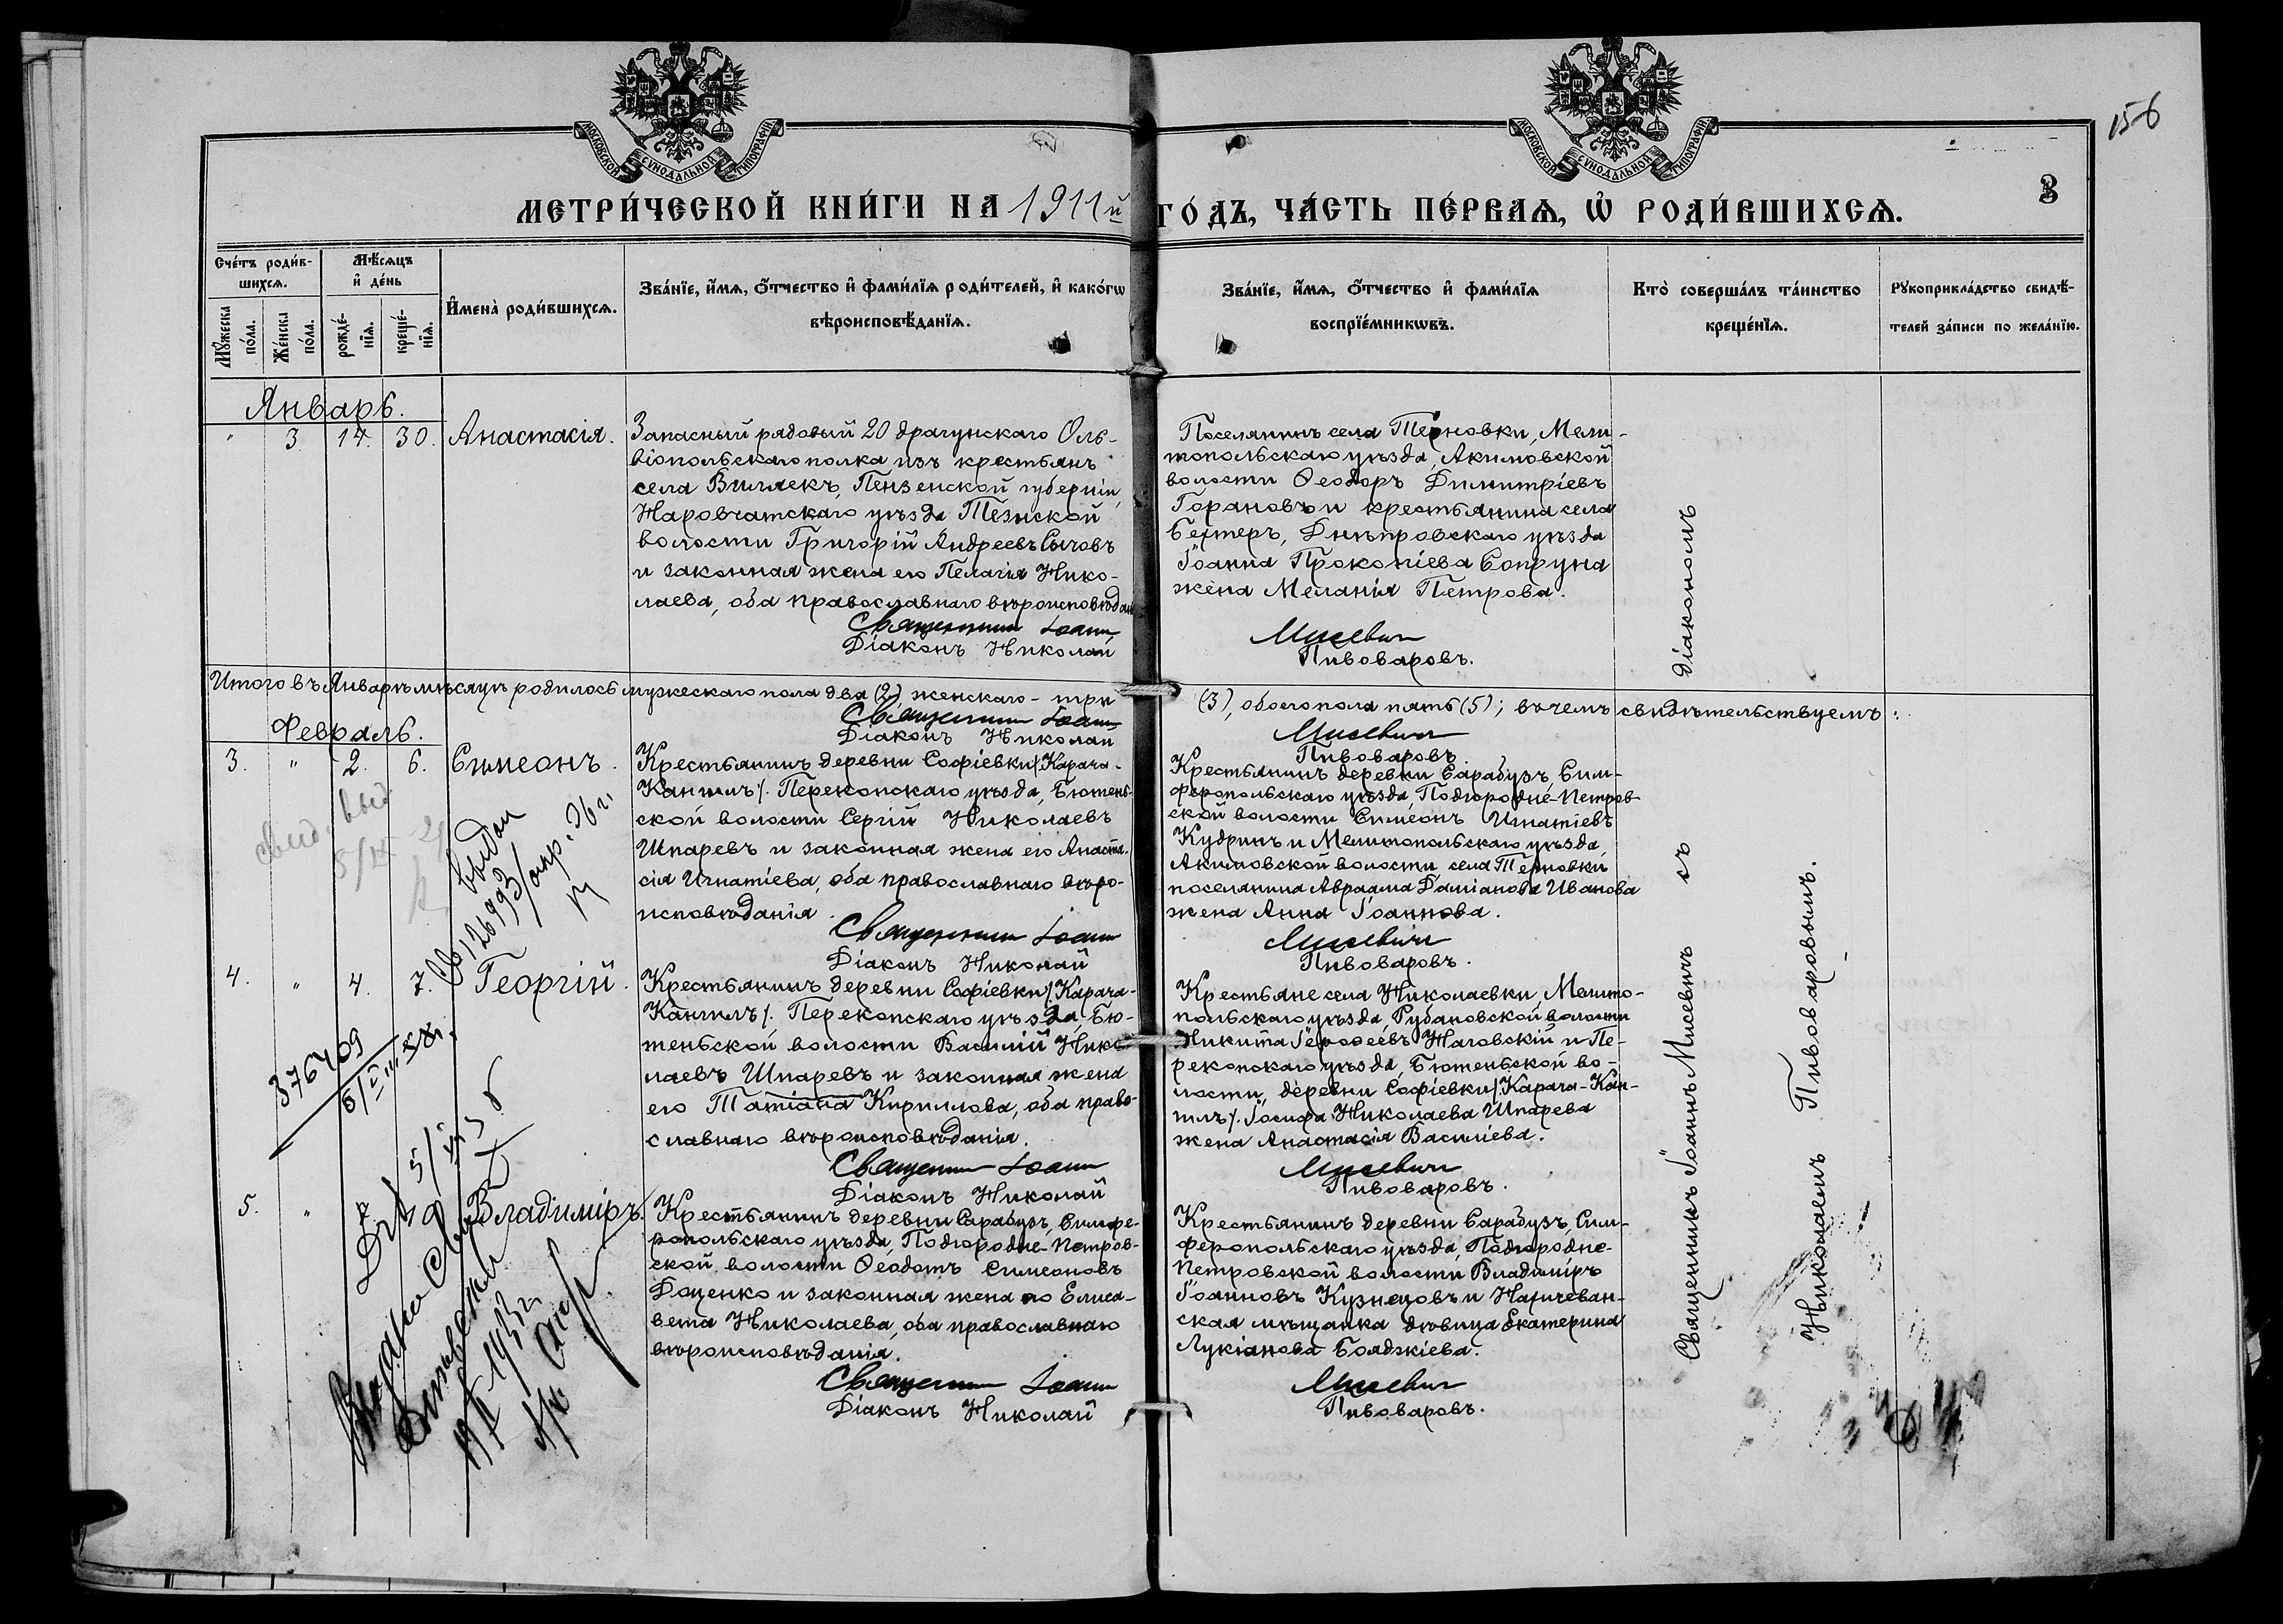 МОСКОВСКОЙ СѴНОДАЛЬНОЙ ТИПОГРАФІИ
МОСКОВСКОЙ СѴНОДАЛЬНОЙ ТИПОГРАФІИ
156
3
МЕТРИ́ЧЕСКОЙ КНИ́ГИ НА 1911й ГО́ДЪ, ЧА́СТЬ ПЕ́РВАѦ, Ѡ РОДИ́ВШИХСѦ.
Сче́тъ роди́в-
шихсѧ.
Мꙋ́жеска по́ла.
Же́нска по́ла.
Мѣ́сѧцъ
и де́нь
рожде́-
нїѧ.
креще́-
нїѧ.
Имена̀ роди́вшихсѧ.
Зва́нїе, и́мѧ, о́тчество и фами́лїѧ роди́телей, и како́гѡ
вѣроисповѣ́данїѧ.
Зва́нїе, и́мѧ, о́тчество и фами́лїѧ
воспрїе́мникѡвъ.
Кто̀ соверша́лъ та́инство
креще́нїѧ.
Рꙋкоприкла́дство свидѣ́-
телей за́писи по жела́нїю.
Январь.
" 3. 14. 30. Анастасія.
Запасный рядовый 20 драгунскаго Оль-
віопольскаго полка изъ крестьянъ
села Виляекъ, Пензенской губерніи,
Наровчатскаго уѣзда
волости Григорій Андреевъ Сычовъ
и законная жена его Пелагія Нико-
лаева, оба православнаго вѣроисповѣдан
Священникъ Іоаннъ
Діаконъ Николай
Поселянинъ села Терновки, Мели-
топольскаго уѣзда, Акимовской
волости Ѳеодоръ Димитріевъ
Горановъ и крестьянина села
Бехтеръ, Днѣпровскаго уѣзда
Іоанна Прокопіева Бопруна
жена Меланія Петрова.
Мисевичъ
Пивоваровъ.
Итого въ Январѣ мѣсяцѣ родилось мужескаго пола два (2) женскаго - три
(3), обоего пола пять (5); въ чемъ свидѣтельствуемъ:
Священникъ Іоаннъ
Діаконъ Николай
Мисевичъ
Пивоваровъ
Февраль.
3. " 2. 6. Симеонъ.
Крестьянинъ деревни Софіевки /Карача-
Кангилъ/. Перекопскаго уѣзда, Бютень-
ской волости Сергій Николаевъ
Шпаревъ и законная жена его Анаста-
сія Игнатіева, оба православнаго вѣро-
исповѣданія.
Священникъ Іоаннъ
Діаконъ Николай
Крестьянинъ деревни Сарабузъ, Сим-
феропольскаго уѣзда, Подгородне-Петров
ской волости Симеонъ Игнатіевъ
Кудринъ и Мелитопольскаго уѣзда,
Акимовской волости села Терновки
поселянина Авраама Даміанова Иванова
жена Анна Іоаннова.
Мисевичъ
Пивоваровъ.
выдан
4. " 4. 7. Георгій.
Крестьянинъ деревни Софіевки /Карача-
Кангилъ/. Перекопскаго уѣзда, Бю-
теньской волости Василій Нико-
лаевъ Шпаревъ и законная жена
его Татіана Кириллова, оба право-
славнаго вѣроисповѣданія.
Священникъ Іоаннъ
Діаконъ Николай
Крестьяне села Николаевки, Мелито-
польскаго уѣзда, Рубановской волости
Никита Наговскій и Пе-
рекопскаго уѣзда, Бютеньской во-
лости, деревни Софіевки /Карача-Кан-
гилъ/. Іосифа Николаева Шпарева
жена Анастасія Василіева.
Мисевичъ
Пивоваровъ.
376409
5. " Владиміръ.
Крестьянинъ деревни Сарабузъ, Симфе-
ропольскаго уѣзда, Подгородне-Петров-
ской волости Ѳеодотъ Симеоновъ
Доценко и законная жена его Елиса-
вета Николаева, оба православнаго
вѣроисповѣданія.
Священникъ Іоаннъ
Діаконъ Николай
Крестьянинъ деревни Сарабузъ, Сим-
феропольскаго уѣзда, Подгородне-
Петровской волости Владиміръ
Іоанновъ Кузнецовъ и Нахичеван-
ская мѣщанка дѣвица Екатерина
Лукіанова Бояджіева.
Мисевичъ
Пивоваровъ.
Священникъ Іоаннъ Мисевичъ съ діакономъ
Николаемъ Пивоваровымъ.